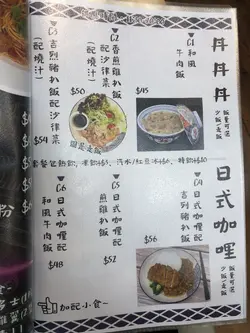 丼丼丼
飯量可選
少飯/走飯
C1和風
牛肉飯
$45
C2香煎雞扒
配沙律菜
飯
(配燒汁)
$50
C3吉烈豬扒飯配沙律菜
(配燒汁)
$54
圖是走飯
套餐包熱飲,凍飲+$3、汽水/紅豆冰+$6、特飲+$10
日式咖喱
飯量可選
少飯/走飯
C4日式咖喱配
吉列豬扒飯
$56
C5日式咖喱配
煎雞扒飯
$52
C6日式咖喱配
和風牛肉飯
$48
加配小食~